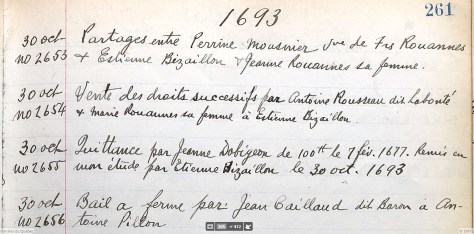 1693
261
30 oct Partages entre Perrine Mousnier Vve de Frs Rouannes
no 2653 & Estienne Bizaillon & Jeanne Rouannes sa femme.
30 oct Vente des droits successifs par Antoine Rousseau dit Labonté
no 2654 & Marie Rouannes sa femme à Estienne Bizaillon.
30 oct Quittance par Jeanne Dobigeon de 100tt le 7 fév. 1677. Remis en
no 2655 mon étude par Etienne Bizaillon le 30 oct. 1693
30 oct Bail a ferme par Jean Caillaud dit Baron à An-
no 2656 toine Pillon